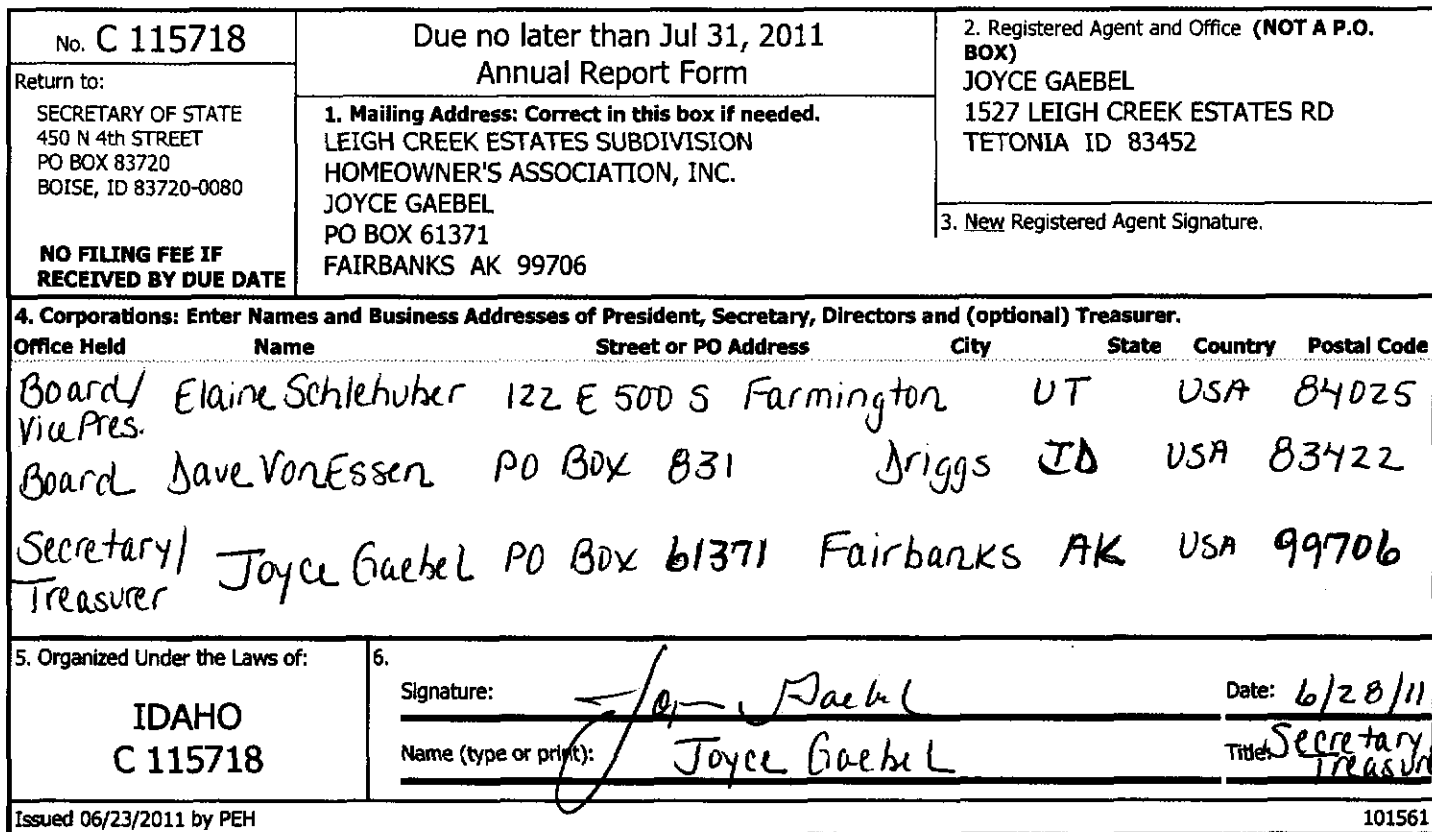 No. C 115718
Return to:
SECRETARY OF STATE
450 N 4th STREET
PO BOX 83720
BOISE, ID 83720-0080
NO FILING FEE IF
RECEIVED BY DUE DATE
Due no later than Jul 31, 2011
Annual Report Form
1. Mailing Address: Correct in this box if needed.
LEIGH CREEK ESTATES SUBDIVISION
HOMEOWNER'S ASSOCIATION, INC.
JOYCE GAEBEL
PO BOX 61371
FAIRBANKS AK 99706
2. Registered Agent and Office (NOT A P.O.
BOX)
JOYCE GAEBEL
1527 LEIGH CREEK ESTATES RD
TETONIA ID 83452
3. New Registered Agent Signature.
4. Corporations: Enter Names and Business Addresses of President, Secretary, Directors and (optional) Treasurer.
Office Held Name Street or PO Address City State Country Postal Code
Board/ Elaine Schlehuber 122 E 500 S Farmington UT USA 84025
Vice Pres.
Board Dave VonEssen PO Box 831 Driggs ID USA 83422
Secretary/ Joyce Gaebel PO Box 61371 Fairbanks AK USA 99706
Treasurer
5. Organized Under the Laws of:
IDAHO
C 115718
6.
Signature: Joyce Gaebel Date: 6/28/11
Name (type or print): Joyce Gaebel Title: Secretary/
Treasure
Issued 06/23/2011 by PEH 101561